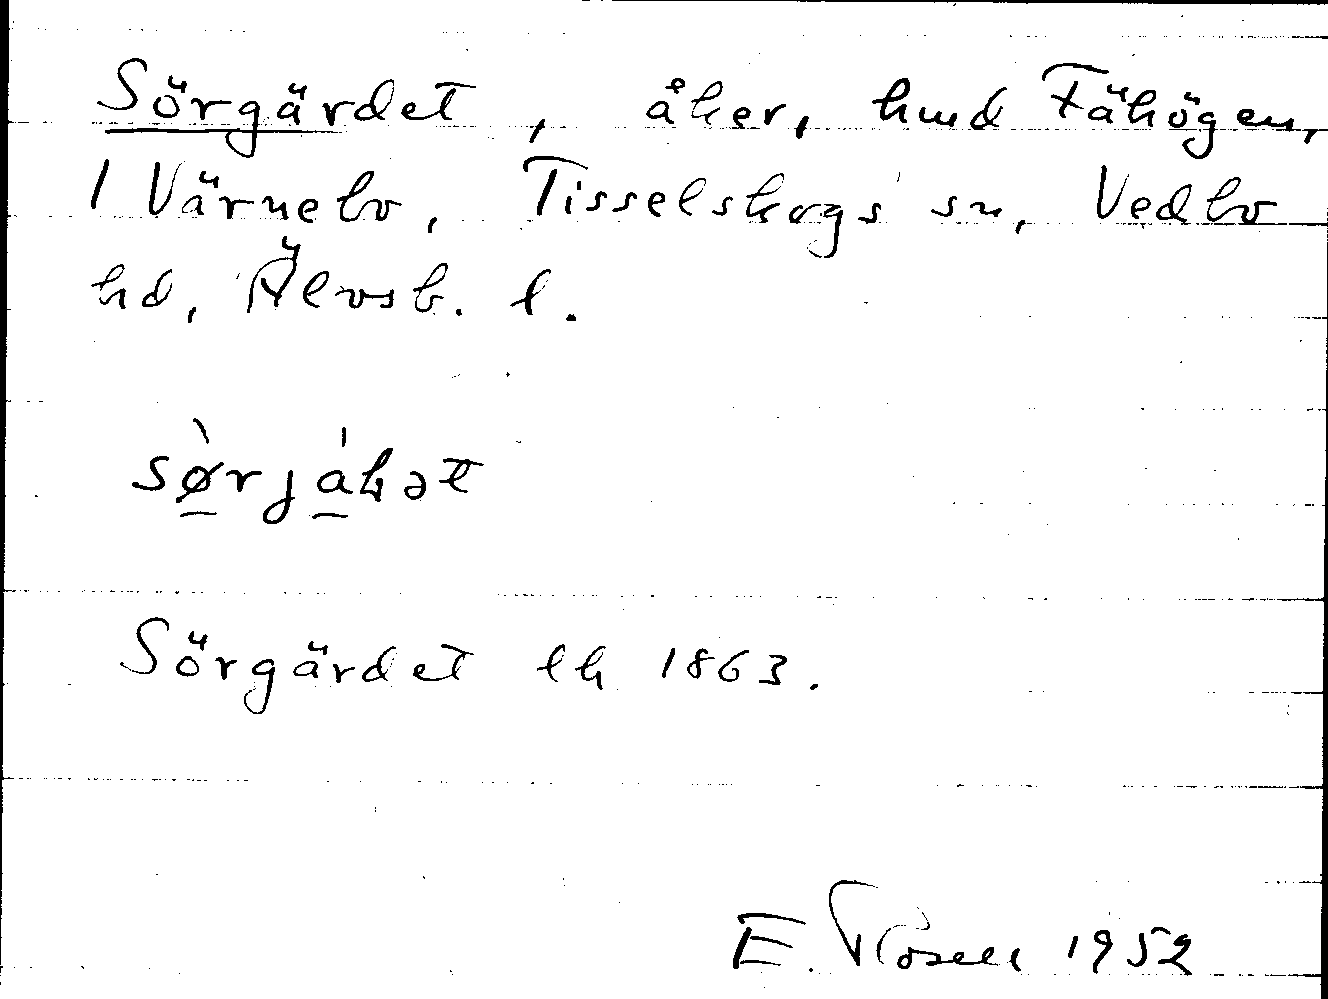 Sörgärdet, åker, hmd Fähögen,
1 Värnebo, Tisselskogs sn, Vedbo
hd, Älvsb. l.
sø̀rjáɬət
Sörgärdet lh 1863.
E. Rosell 1952